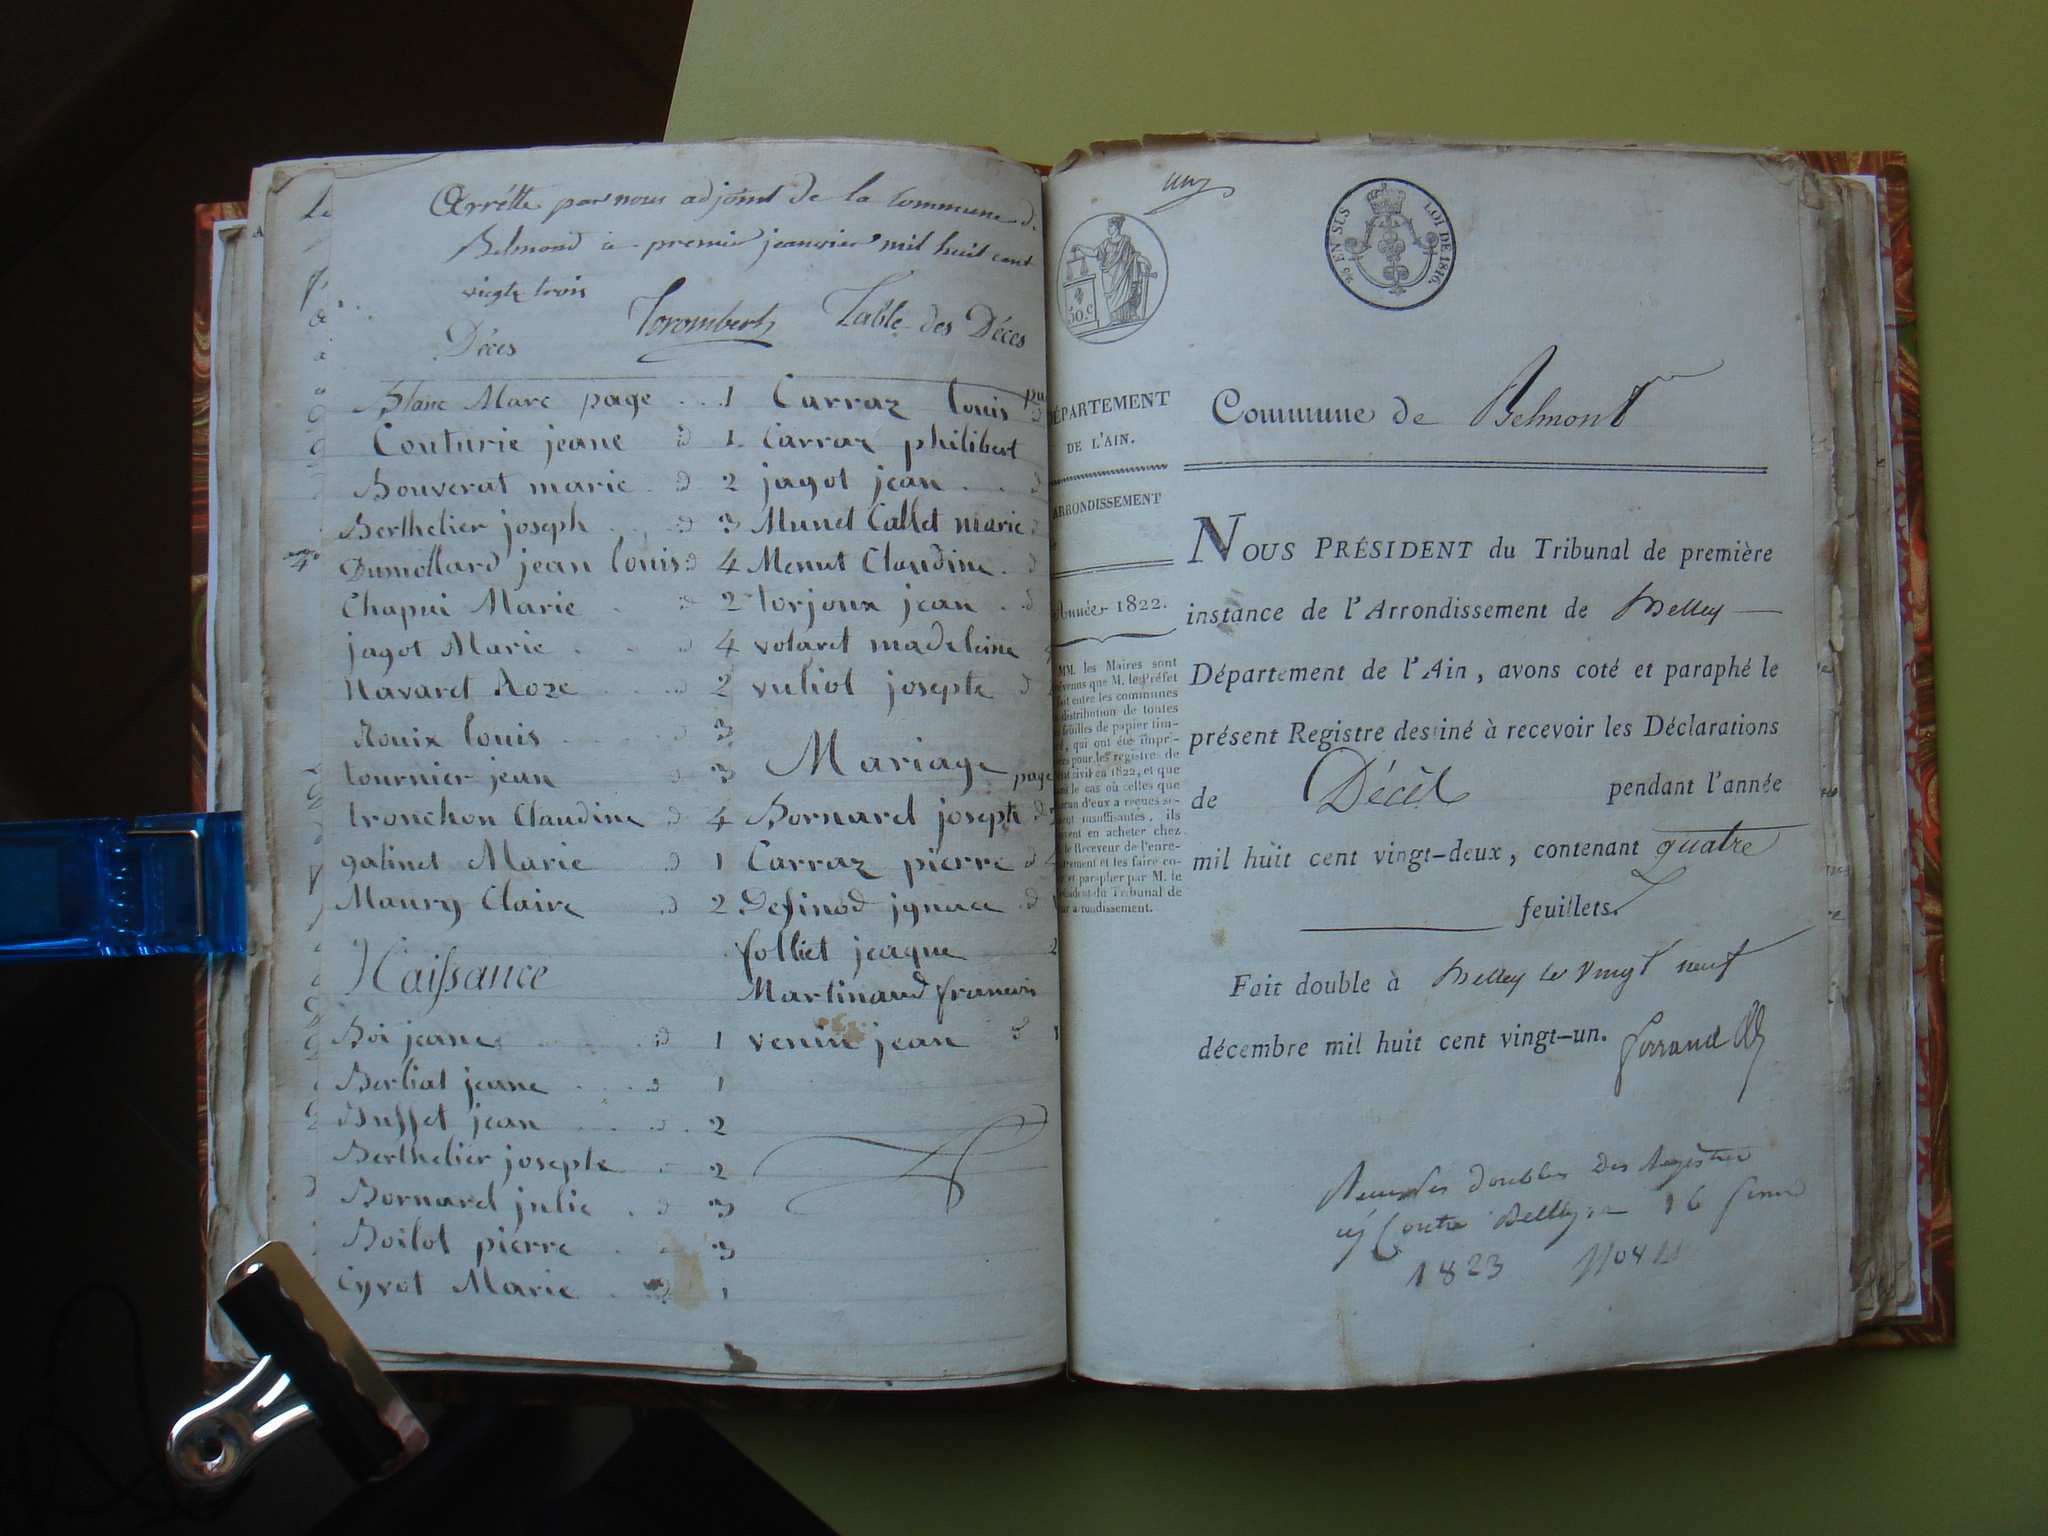 Arrétte par nous adjoint de la Commune de
Belmond a premié jeanvier mil huit cent
vingte trois
Torombert Table des Déces
Déces
Blanc Marc page 1
Conturie jeane d 1
Bouverat marie d 2
Berthelier joseph d 3
Dumollard jean louis d 4
Chapui Marie d 2
jagot Marie 4
Navaret Roze 2
Rouix louis 3
tournier jean d 3
tronchon Claudine d 4
galinet Marie d 1
Maury Claire d 2
Naissance
Boi jeane d 1
Berliat jeane d 1
Buffet jean 2
Berthelier josepte 2
Bornard julie d 3
Boilot pierre 3
Cyvot Marie 1
Carraz louis
Carraz philibert
jagot jean d
Munet Callet marie
Menut Claudine d
torjoux jean d
volaret madeleine
vuliot josepte d
Mariage page
Bornard josepte d
Carraz pierre d
Definod ygnace d
folliet jeaque 2
Martinaud francois
venin jean d 1
DÉPARTEMENT
DE L'AIN.
ARRONDISSEMENT
Année 1822.
MM. les Maires sont
prévenus que M. le Préfet
fait entre les communes
distribution de toutes
feuilles de papier tim-
, qui ont été impri-
pour les registre de
civil en 1822, et que
le cas où celles que
d'eux a reçues se-
insuffisantes, ils
en acheter chez
le Receveur de l'enre-
et les faire co-
et parapher par M. le
du Tribunal de
arrondissement.
50.c
EN SUS
LOI DE 1816.
Commune de Belmont
NOUS PRÉSIDENT du Tribunal de première
instance de l'Arrondissement de Belley
Département de l'Ain, avons coté et paraphé le
présent Registre destiné à recevoir les Déclarations
de Décès pendant l'année
mil huit cent vingt-deux, contenant quatre
feuillets.
Fait double à Belley le vingt neuf
décembre mil huit cent vingt-un.
doubles des Registres
Contre Belley 16
1823